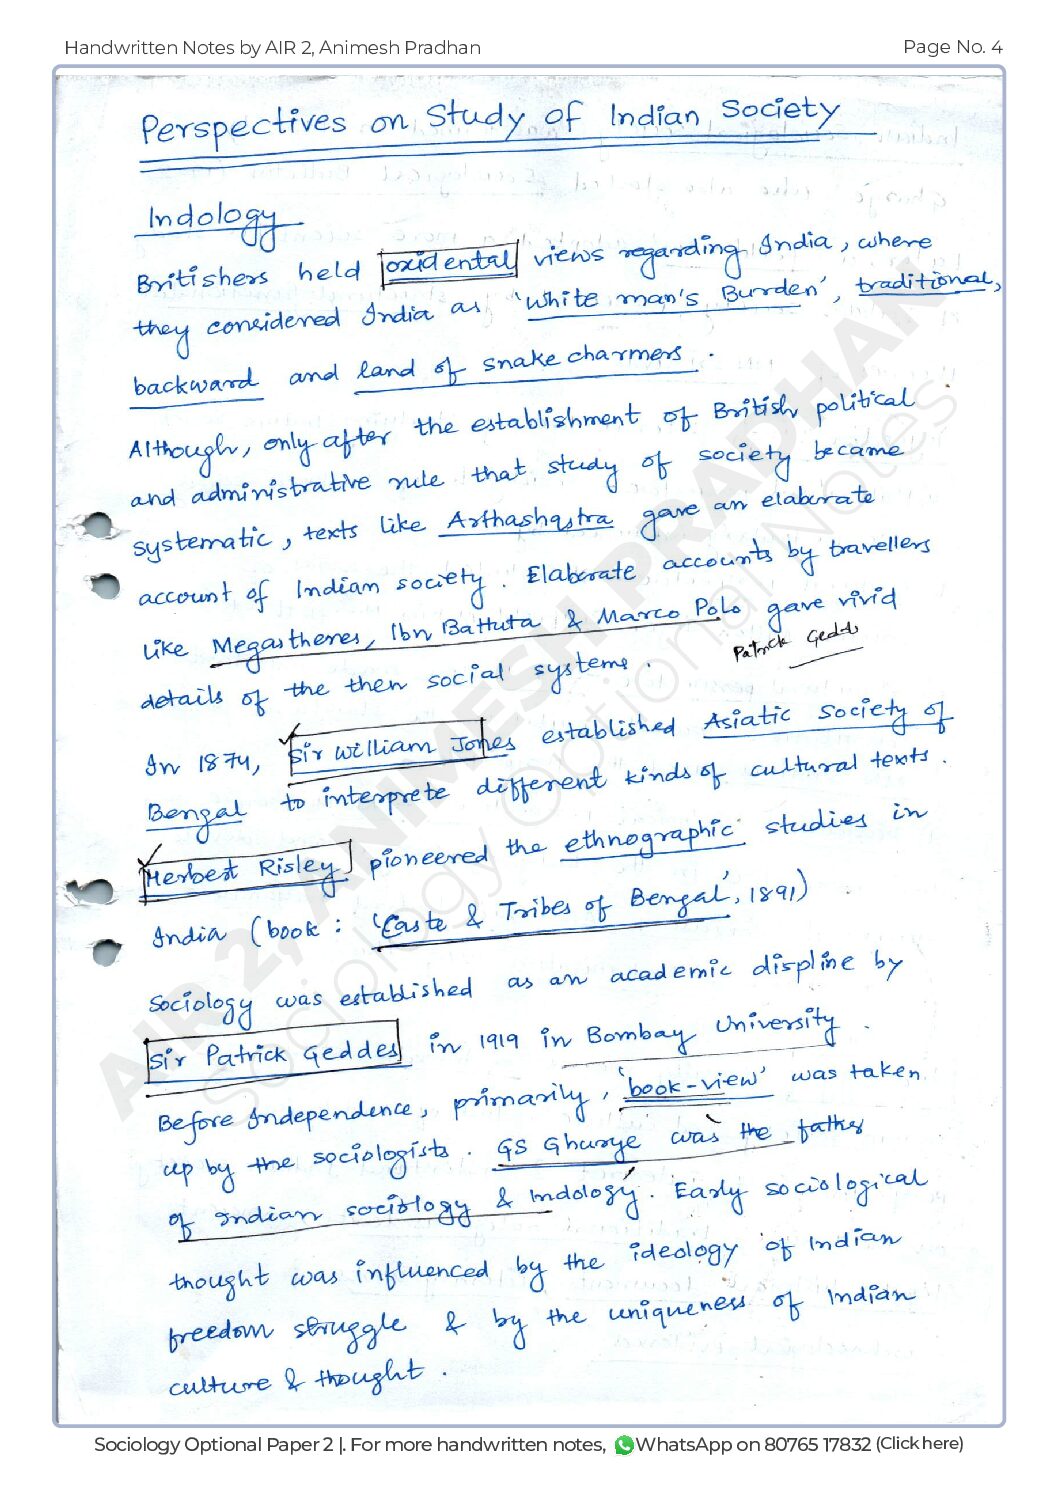 Handwritten Notes by AIR 2, Animesh Pradhan
Page No. 4
Perspectives on Study of Indian Society
Indology
Britishers held oxidental views regarding India, where
they considered India as 'White man's Burden', traditional,
backward and land of snake charmers.
Although, only after the establishment of British political
and administrative rule that study of society became
systematic, texts like Arthashastra gave an elaborate
account of Indian society. Elaborate accounts by travellers
like Megasthenes, Ibn Battuta & Marco Polo gave vivid
Patrick Gedds
details of the then social systems.
In 1874, Sir William Jones established Asiatic Society of
Bengal to interprete different kinds of cultural texts.
Herbert Risley pioneered the ethnographic studies in
India (book: 'Caste & Tribes of Bengal', 1891)
Sociology was established as an academic displine by
Sir Patrick Geddes in 1919 in Bombay University.
Before Independence, primarily, 'book-view' was taken
up by the sociologists. GS Ghurye was the father
of Indian sociology & Indology. Early sociological
thought was influenced by the ideology of Indian
freedom struggle & by the uniqueness of Indian
culture & thought.
AIR 2, ANIMESH PRADHAN
Sociology Optional Notes
Sociology Optional Paper 2 |. For more handwritten notes, WhatsApp on 80765 17832 (Click here)